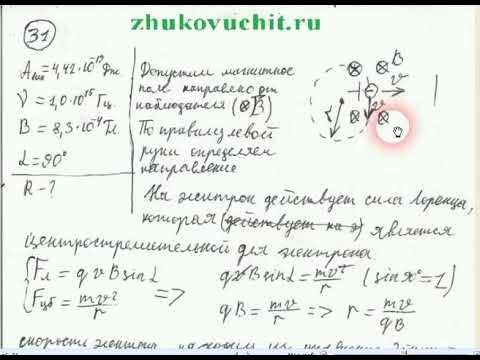 zhukovuchit.ru
31
Aвых = 4,42·10⁻¹⁹ Дж
ν = 1,0·10¹⁵ Гц
B = 8,3·10⁻⁴ Тл
α = 90°
R - ?
Допустим магнитное
поле направлено от
наблюдателя (⊗B⃗)
По правилу левой
руки определяем
направление
B⃗
v⃗
r
На электрон действует сила Лоренца,
которая (действует на э) является
центростремительной для электрона
Fл = qvBsinα
Fцб = mv²/r
=> qvBsinα = mv²/r (sinα = 1)
qB = mv/r => r = mv/qB
скорость